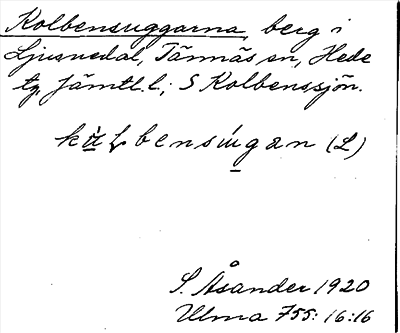 Kolbensuggarna, berg i
Ljusnedal, Tännäs sn, Hede
tg, Jämtl. l; S Kolbenssjön.
bensúgan (L)
S. Åsander 1920
Ulma 755: 16:16